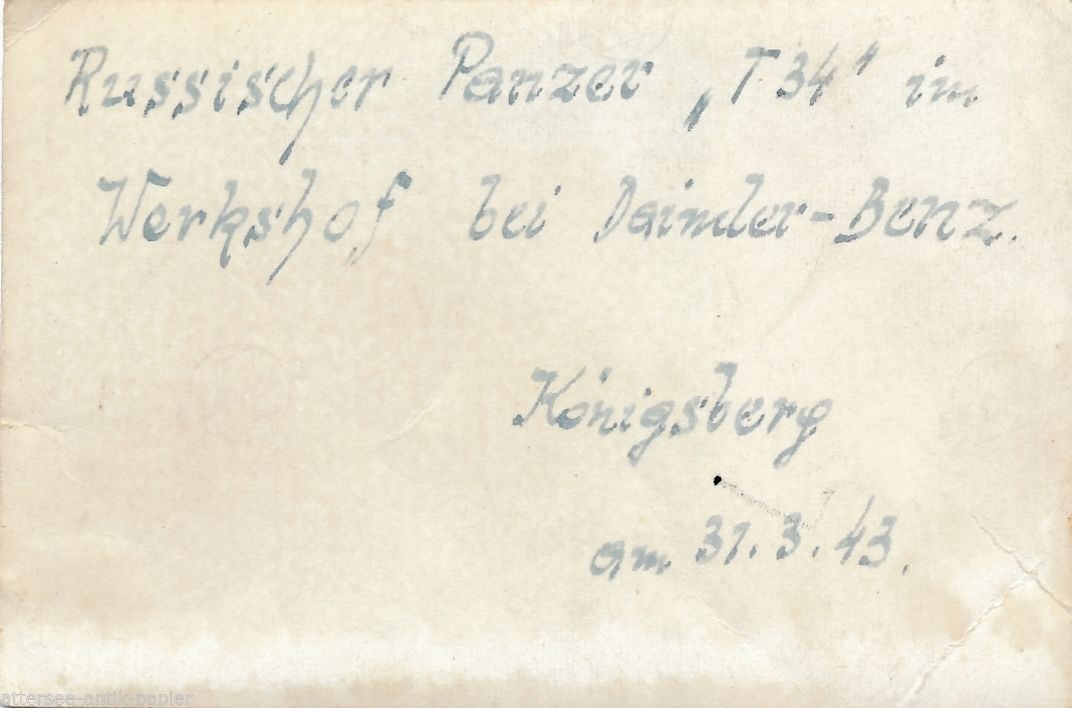 Russischer Panzer „T34" im
Werkshof bei Daimler-Benz.
Königsberg
am 31.3.43.
attersee-antik-papier